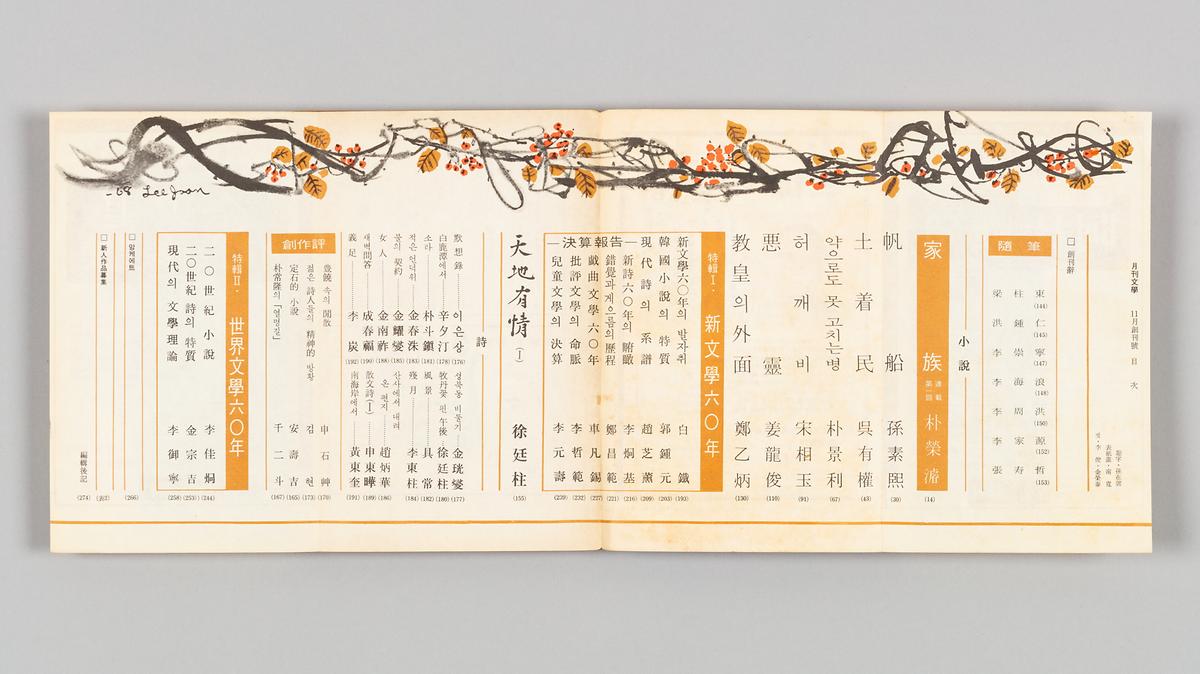 月刊文學 11月創刊號 目次
題字·孫在馨
表紙畫·南寬
컷·李俊·金榮泰
□創刊辭
隨筆
梁柱東 (144)
洪鍾仁 (145)
李崇寧 (147)
李海浪 (148)
李周洪 (150)
李家源 (152)
張寿哲 (153)
小說
家族 連載 第一回 朴榮濬 (14)
帆船 孫素熙 (30)
土着民 吳有權 (43)
약으로도 못 고치는 병 朴景利 (67)
허깨비 宋相玉 (91)
悪靈 姜龍俊 (110)
教皇의 外面 鄭乙炳 (130)
特輯Ⅰ· 新文學六〇年
新文學六〇年의 발자취 白鐵 (193)
韓國小說의 特質 郭鍾元 (203)
現代詩의 系譜 趙芝薰 (209)
—決算報告—
新詩六〇年의 腑瞰 李炯基 (216)
錯覺과 게으름의 歷程 鄭昌範 (221)
戱曲文學六〇年 車凡錫 (227)
批評文學의 命脈 李哲範 (232)
兒童文學의 決算 李元壽 (239)
天地有情 (Ⅰ) 徐廷柱 (155)
詩
默想錄 이은상 (176)
白鹿潭에서 辛夕汀 (178)
소라 朴斗鎭 (181)
적은 언덕위 金春洙 (183)
불의 契約 金耀燮 (185)
女人 金南祚 (188)
새벽問答 成春福 (190)
義足 李炭 (192)
성북동 비둘기 金珖燮 (177)
牧丹꽃 핀 午後 徐廷柱 (180)
風景 具常 (182)
殘月 李東柱 (184)
산사에서 내려온 편지 趙炳華 (186)
散文詩(Ⅰ) 申東曄 (189)
南海岸에서 黃東奎 (191)
創作評
豊饒 속의 閒散 申石艸 (170)
젊은 詩人들의 精神的 방황 김현 (173)
定石的 小說 安壽吉 (165)
朴常隆의「열명길」 千二斗 (167)
特輯Ⅱ· 世界文學六〇年
二〇世紀 小說 李佳炯 (244)
二〇世紀 詩의 特質 金宗吉 (253)
現代의 文學理論 李御寧 (258)
□앙케에트 (266)
□新人作品募集 (表3)
編輯後記 (274)
-68 Lee Joon